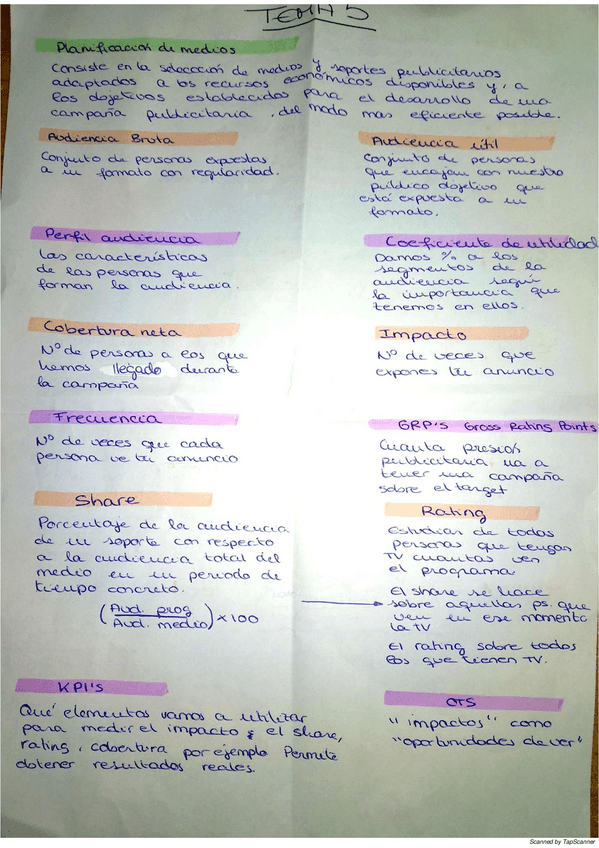 TEMA 5
Planificación de medios
Consiste en la selección de medios y soportes publicitarios
adaptados a los recursos económicos disponibles y, a
los objetivos establecidos para el desarrollo de una
campaña publicitaria, del modo más eficiente posible.
Audiencia Bruta
Conjunto de personas expuestas
a un formato con regularidad.
Audiencia útil
Conjunto de personas
que encajan con nuestro
público objetivo que
está expuesta a un
formato.
Perfil audiencia
Las características
de las personas que
forman la audiencia.
Coeficiente de utilidad
Damos % a los
segmentos de la
audiencia según
la importancia que
tenemos en ellos.
Cobertura neta
Nº de personas a los que
hemos llegado durante
la campaña
Impacto
Nº de veces que
expones tu anuncio
Frecuencia
Nº de veces que cada
persona ve tu anuncio
GRP'S Gross Rating Points
Cuanta presión
publicitaria va a
tener una campaña
sobre el target
Share
Porcentaje de la audiencia
de un soporte con respecto
a la audiencia total del
medio en un periodo de
tiempo concreto.
(Aud. prog / Aud. medio) x 100
Rating
Estudian de todas
personas que tengan
TV cuantas ven
el programa
El share se hace
sobre aquellas ps. que
ven en ese momento
la TV
El rating sobre todos
los que tienen TV.
KPI'S
Qué elementos vamos a utilizar
para medir el impacto y el share,
rating, cobertura por ejemplo Permite
obtener resultados reales.
OTS
"impactos" como
"oportunidades de ver"
Scanned by TapScanner